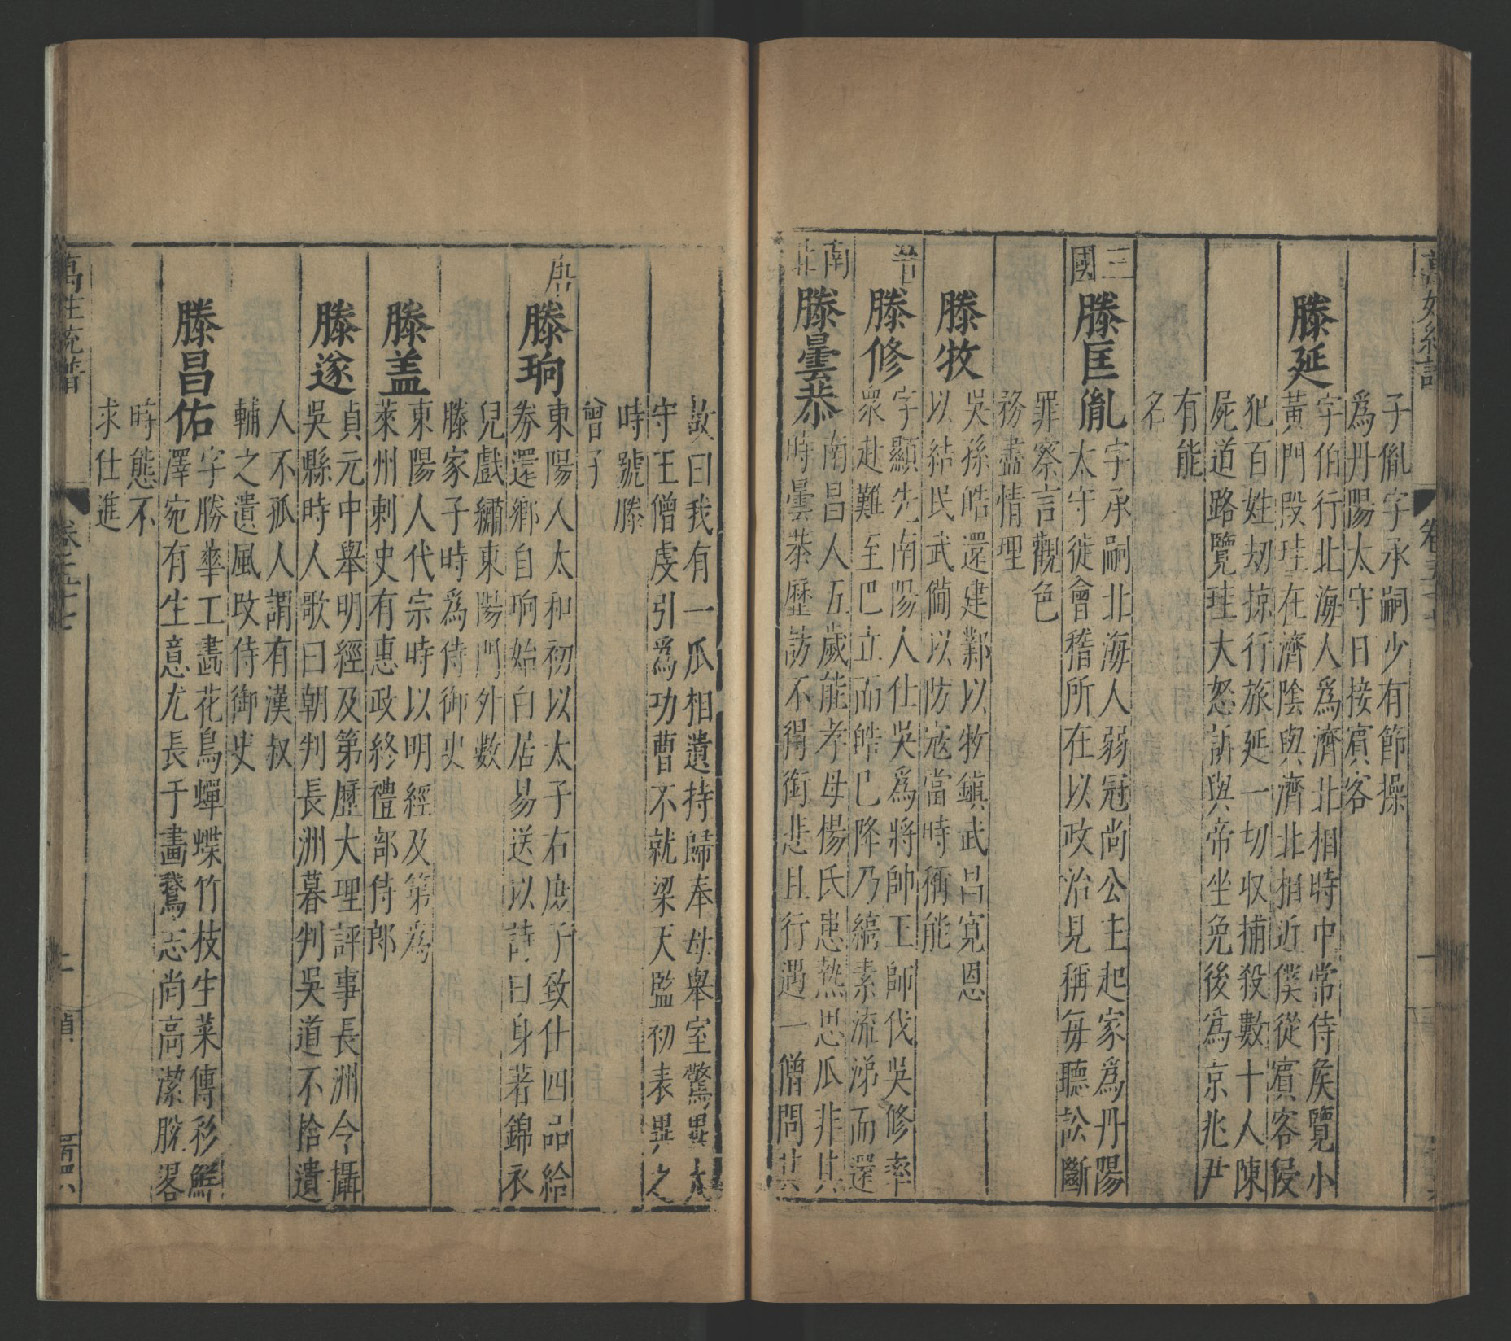 子胤字承嗣少有節操
爲丹陽太守日接賔客
滕延
字伯行北海人爲濟北相時中常侍矦覽小
黃門段珪在濟陰與濟北相近僕從賔客侵
犯百姓刼掠行旅延一切収捕殺數十人陳
屍道路覽珪大怒訴與帝坐免後爲京兆尹
有能
名
三國
滕匡胤
字承嗣北海人弱冠尚公主起家爲丹陽
太守徙會稽所在以政治見稱每聽訟斷
罪察言觀色
務盡情理
滕牧
吳孫皓還建鄴以牧鎭武昌寬恩
以結民武僃以防寇當時稱能
晉
滕修
字顯先南陽人仕吳爲將帥王師伐吳修率
衆赴難至巴立而皓已降乃縞素流涕而還
南北
滕曇恭
南昌人五歲能孝母楊氏患熱思瓜非其
時曇恭歷訪不得銜悲且行遇一僧問其
故曰我有一瓜相遺持歸奉母舉室驚異太
守王僧虔引爲功曹不就梁天監初表異之
時號滕
曾子
唐
滕珦
東陽人太和初以太子右庶子致仕四品給
券還鄉自珦始白居易送以詩曰身著錦衣
兒戲繡東陽門外數
滕家子時爲侍御史
滕盖
東陽人代宗時以明經及第爲
萊州刺史有惠政終禮部侍郎
滕遂
貞元中舉明經及第歷大理評事長洲令攝
吳縣時人歌曰朝判長洲暮判吳道不拾遺
人不孤人謂有漢叔
輔之遺風攺侍御史
滕昌佑
字勝華工畫花鳥蟬蝶竹枝生菜傳彩鮮
澤宛有生意尤長于畫鵞志尚高潔脫畧
時態不
求仕進
萬姓統譜
卷五十七